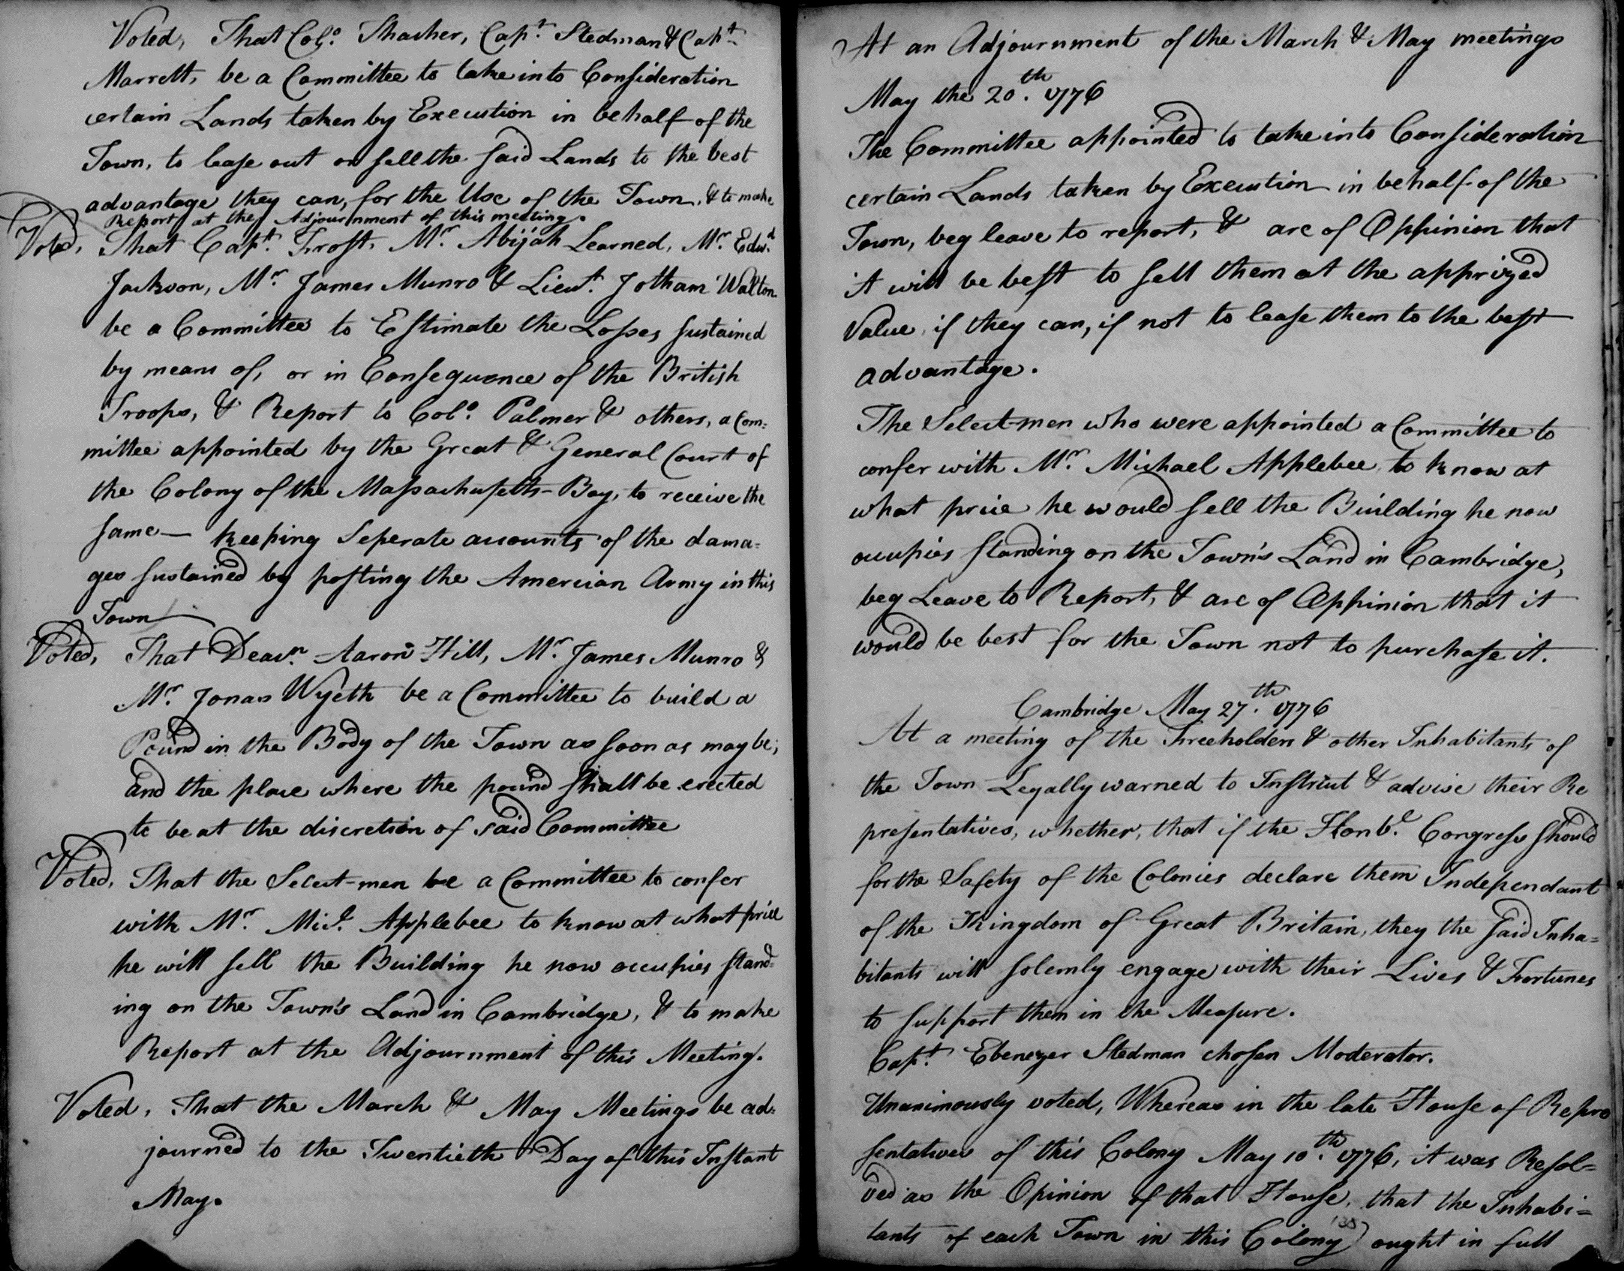 Voted, That Col.o Thacher, Cap.t Stedman & Cap.t
Marrett, be a Committee to take into Consideration
certain Lands taken by Execution in behalf of the
Town, to lease out or sell the said Lands to the best
advantage they can, for the Use of the Town, & to make
Report at the Adjournment of this meeting.
Voted, That Cap.t Frost, M.r Abijah Learned, M.r Edw.d
Jackson, M.r James Munro & Lieu.t Jotham Walton
be a Committee to Estimate the Losses sustained
by means of, or in Consequence of the British
Troops, & Report to Col.o Palmer & others, a Com=
mittee appointed by the Great & General Court of
the Colony of the Massachusetts-Bay, to receive the
same — keeping Seperate accounts of the dama=
ges sustained by posting the American Army in this
Town
Voted, That Deac.n Aaron Hill, M.r James Munro &
M.r Jonas Wyeth be a Committee to build a
Pound in the Body of the Town as soon as may be;
and the place where the pound shall be erected
to be at the discretion of said Committee
Voted, That the Select-men be a Committee to confer
with M.r Mic.l Applebee to know at what price
he will sell the Building he now occupies stand=
ing on the Town's Land in Cambridge, & to make
Report at the Adjournment of this Meeting.
Voted, That the March & May Meetings be ad=
journed to the Twentieth Day of this Instant
May.
At an Adjournment of the March & May meetings
May the 20.th 1776
The Committee appointed to take into Consideration
certain Lands taken by Execution in behalf of the
Town, beg leave to report, & are of Oppinion that
it will be best to sell them at the apprized
Value, if they can, if not to lease them to the best
advantage.
The Select-men who were appointed a Committee to
confer with M.r Michael Applebee to know at
what price he would sell the Building he now
occupies standing on the Town's Land in Cambridge,
beg Leave to Report, & are of Oppinion that it
would be best for the Town not to purchase it.
Cambridge May 27.th 1776
At a meeting of the Freeholders & other Inhabitants of
the Town Legally warned to Instruct & advise their Re
presentatives, whether, that if the Hon.ble Congress should
for the Safety of the Colonies declare them Independant
of the Kingdom of Great Britain, they the said Inha=
bitants will solemly engage with their Lives & Fortunes
to support them in the Measure.
Cap.t Ebenezer Stedman chosen Moderator.
Unanimously voted, Whereas in the late House of Repre
sentatives of this Colony May 10.th 1776, it was Resol=
ved as the Opinion of that House, that the Inhabi=
tants of each Town in this Colony ought in full